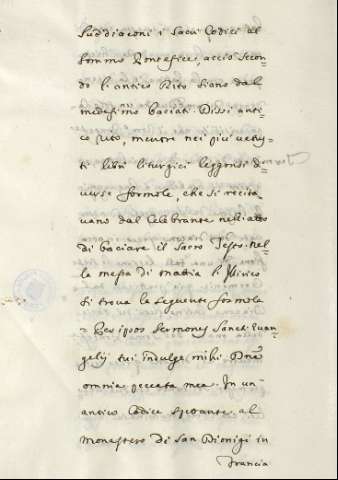 Suddiaconi i Sacri Codici al
Sommo Pontefice, acciò secon=
do l'antico Rito siano dal
medesimo baciati. Dissi anti=
co rito, mentre nei più vetus=
ti libri liturgici leggonsi di=
verse formole, che si recita=
vano dal Celebrante nell'atto
di baciare il Sacro Testo. Nel=
la messa di Mattia l'Illirico
si trova la seguente formola
= Per istos Sermones Sancti Evan=
gelij tui indulge mihi Dñe
omnia peccata mea. In un'
antico Codice spettante al
Monastero di San Dionigi in
Francia